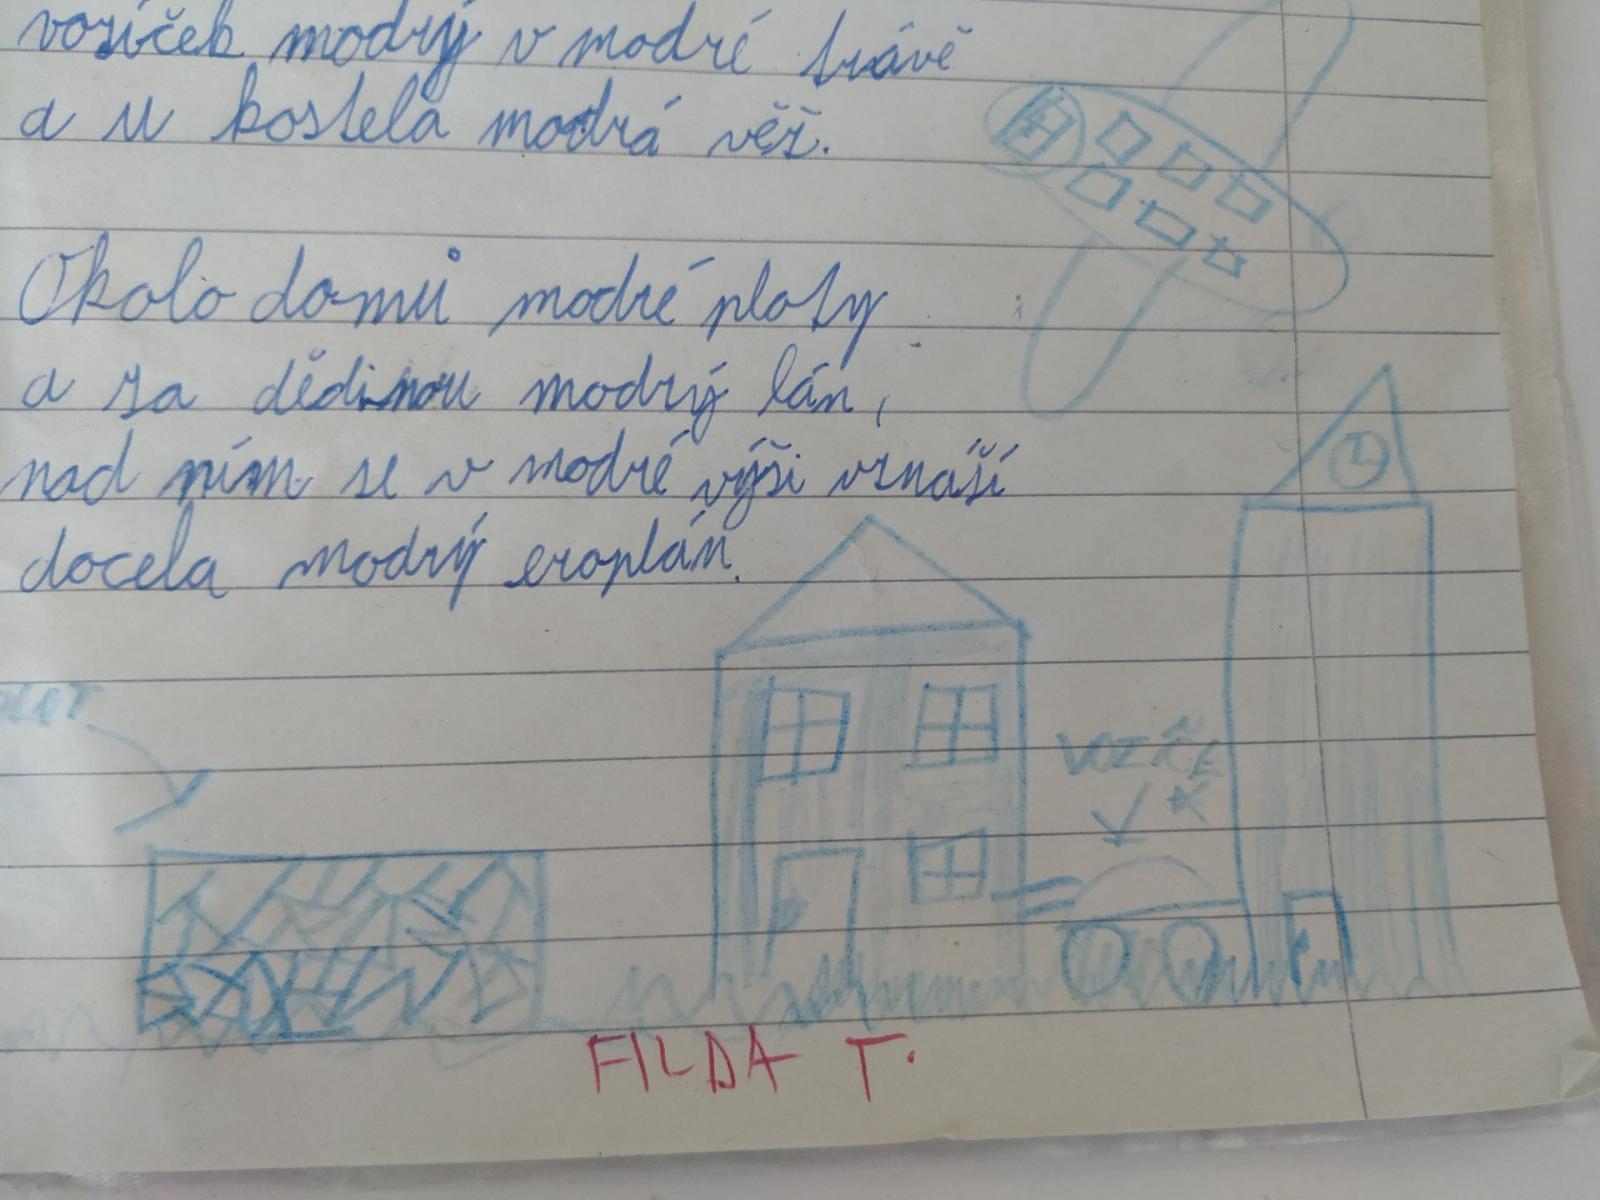 vozíček modrý v modré trávě
a u kostela modrá věž.
Okolo domů modré ploty
a za dědinou modrý lán,
nad ním se v modré výši vznáší
docela modrý eroplán.
VOZÍČE
K
FILDA T.